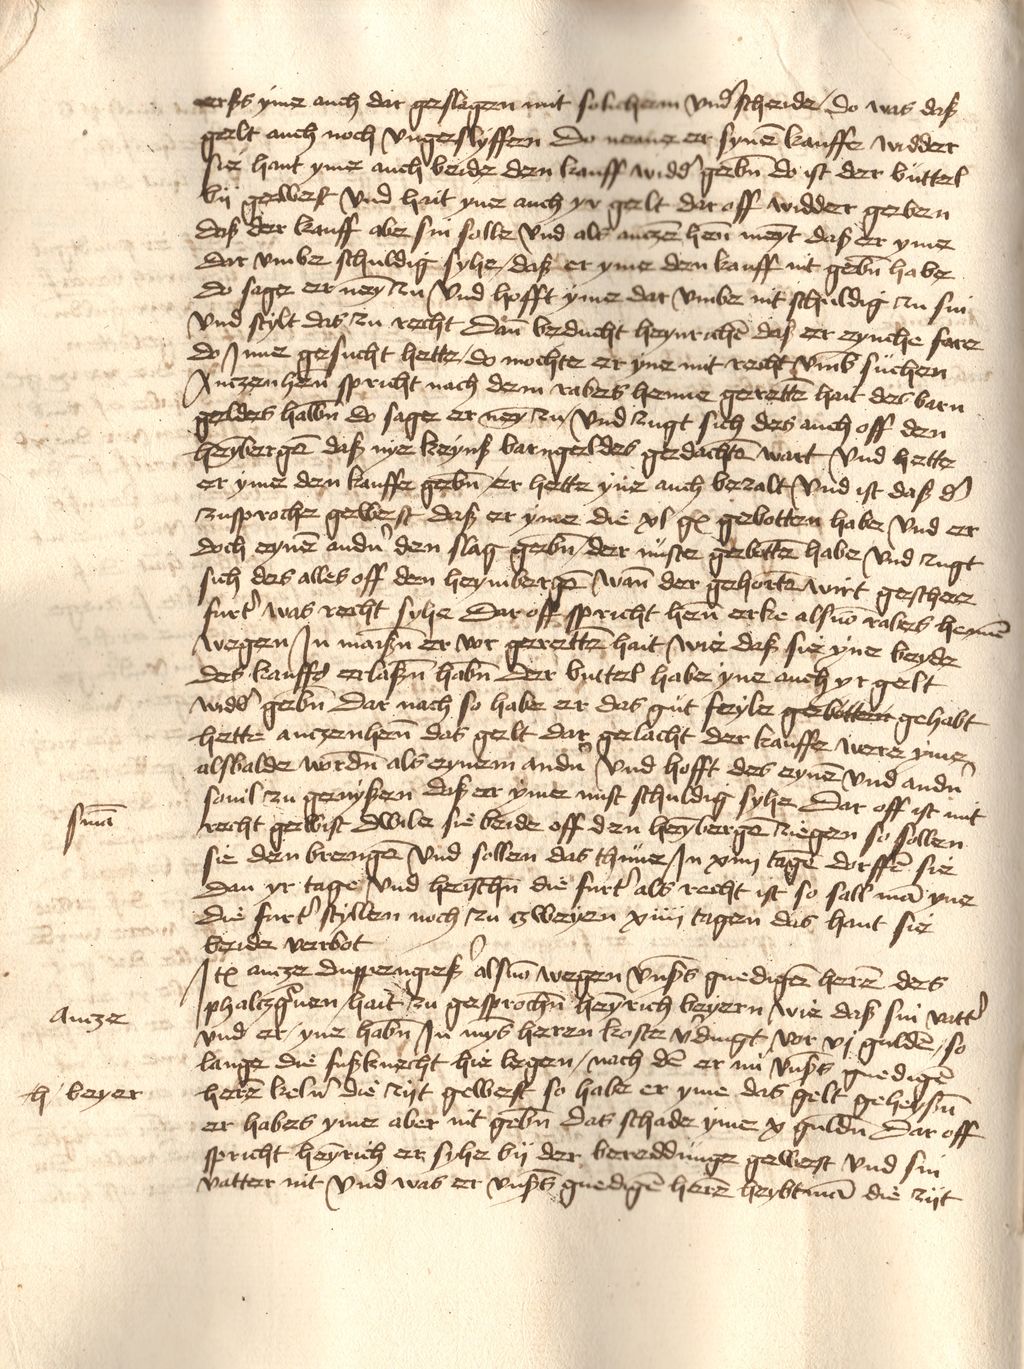 erßs yme auch dar geslagen mit solichem vnd(er)scheide / do was daß
gelt auch noch vngeslyffen Do neme er synē kauffe widder
sie hant yme auch beide den kauff widd(er) gebn̄ do ist der büttel
bij gewest vnd hait yne auch yr gelt dar off widder geben
daß der kauff abe sin solle vnd als anczen hen̄ meyt daß er yme
dar vmbe schuldig syhe / daß er yme den kauff nit gebn̄ habe
do sage er ney zu vnd hofft yme dar vmbe nit schuldig zu sin
vnd stilt das zu recht Dan̄ beducht heynrichē daß er eynche fare
do Inne gesucht hette / do mochte er yne mit recht vmb süchen
Anczenhen̄ spricht nach dem rabes henne gerettē hait des barn
geldes halbn̄ do sage er ney zu / vnd zugt sich des auch off den
heȳbergē daß nye keynß barngeldes gedachtē wart vnd hette
er yme den kauffe gebn̄ / er hette yne auch bezalt vnd ist daß d(er)
zusproche gewest daß er yme die xl gł gebotten habe vnd er
doch eynē andn̄ den slag gebn̄ / der mÿste gebottē habe vnd zugt
sich des alles off den heymbergē wan̄ der gehortē wirt geschee
furt(er) was recht syhe Dar off spricht hen̄ erke alsuō rabes hennē
wegen Jn maißn̄ er vor gerettē hait / wie daß sie yne beyde
des kauffs erlaßn̄ habn̄ Der buttel habe yne auch yr gelt
widd(er) gebn̄ Dar nach so habe er das gut feyle gebotten gehabt
hette anczenhen̄ das gelt dar gelacht der kauffe were yme
alsbalde wordn̄ als eynem andn̄ vnd hofft des eynē vnd andn̄
souil zu genyßen daß er yme nust schuldig syhe Dar off ist mit
recht gewist dwile sie beide off den heȳbergē ziegen so sollen
sie den brengē vnd sollen das thüne Jn xiiij tagē dorffē sie
dan yr tage vnd heischn̄ die furt(er) als recht ist so sall mā yne
die furt(er) stillen noch zu zweyen xiiij tagen das hant sie
beide verbot
Jtē ancze duppengieß(er) alsuō wegen vnß(er)s gnedigē herē des
phalczg(ra)uen / hait zu gesprochn̄ heynrich beyern wie daß sin vatt(er)
vnd er / yne habn̄ Jn myß herren koste v(er)dingt vor vj guldē / so
lange die fußknecht hie legen / nach dē er nu vnß(er)s gnedigē
herē keln̄ die zijt gewest so habe er yme das gelt geheyßn̄
er habes yme aber nit gebn̄ das schade yme x guldn̄ Dar off
spricht heynrich er syhe bij der bereddünge gewest vnd sin
vatter nit vnd was er vnß(er)s gnedigē herē heybtmā die zijt
smā
Ancze
h beyer